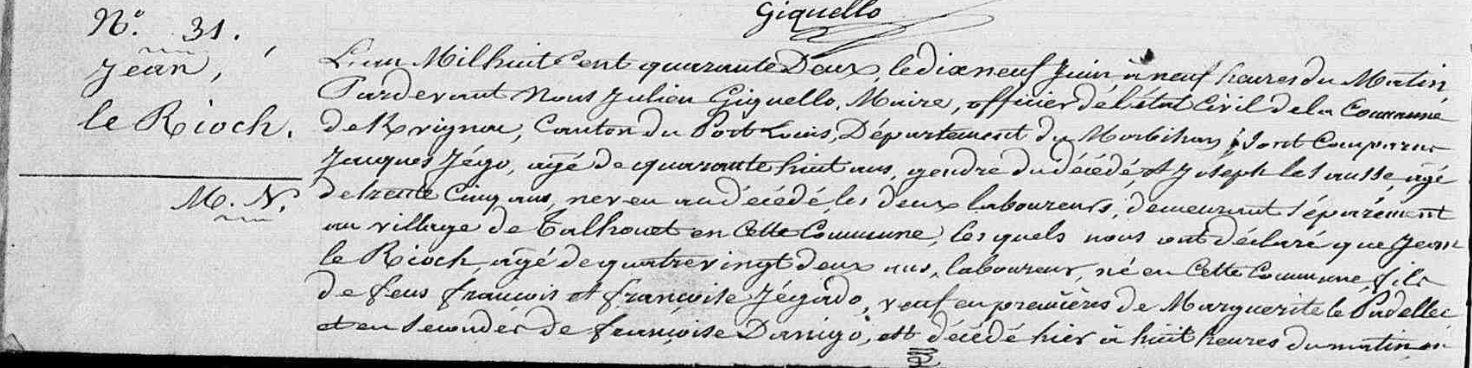 Giquello
N.° 31.
Jean,
le Rioch.
M. N.
L'an Mil huit Cent quarante Deux, le dix neuf Juin à neuf heures du Matin
Pardevant Nous Julien Giquello, Maire, officier de l'état Civil de la Commune
de Kvignac, Canton du Port Louis, Département du Morbihan, Sont Comparus
Jacques Jégo, agé de quarante huit ans, gendre du décédé, et Joseph le agé
de trente Cinq ans, neveu au décédé, les deux laboureurs, demeurant séparément
au village de Talhouet en Cette Commune, les quels nous ont déclaré que Jean
le Rioch, agé de quatre vingt deux ans, laboureur, né en Cette Commune, fils
de feus francois et francoise Jégado, veuf en premières de Marguerite le Padellec
et en secondes de françoise Danigo, est décédé hier à huit heures du matin en